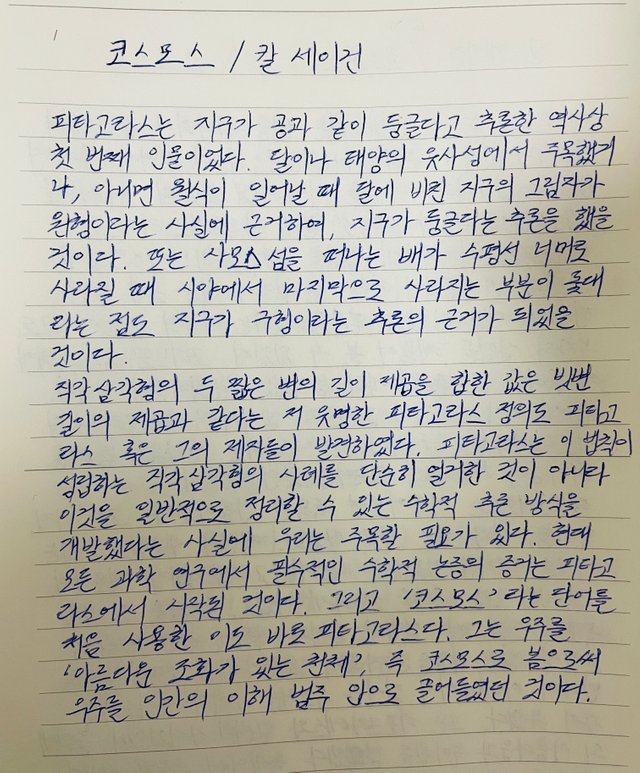 1
코스모스 / 칼 세이건
피타고라스는 지구가 공과 같이 둥글다고 추론한 역사상
첫 번째 인물이었다. 달이나 태양의 유사성에서 주목했거
나, 아니면 월식이 일어날 때 달에 비친 지구의 그림자가
원형이라는 사실에 근거하여, 지구가 둥글다는 추론을 했을
것이다. 또는 사모스 섬을 떠나는 배가 수평선 너머로
사라질 때 시야에서 마지막으로 사라지는 부분이 돛대
라는 점도 지구가 구형이라는 추론의 근거가 되었을
것이다.
직각삼각형의 두 짧은 변의 길이 제곱을 합한 값은 빗변
길이의 제곱과 같다는 저 유명한 피타고라스 정의도 피타고
라스 혹은 그의 제자들이 발견하였다. 피타고라스는 이 법칙이
성립하는 직각삼각형의 사례를 단순히 열거한 것이 아니라
이것을 일반적으로 정리할 수 있는 수학적 추론 방식을
개발했다는 사실에 우리는 주목할 필요가 있다. 현대
모든 과학 연구에서 필수적인 수학적 논증의 증거는 피타고
라스에서 시작된 것이다. 그리고 '코스모스'라는 단어를
처음 사용한 이도 바로 피타고라스다. 그는 우주를
'아름다운 조화가 있는 전체', 즉 코스모스로 봄으로써
우주를 인간의 이해 범주 안으로 끌어들였던 것이다.